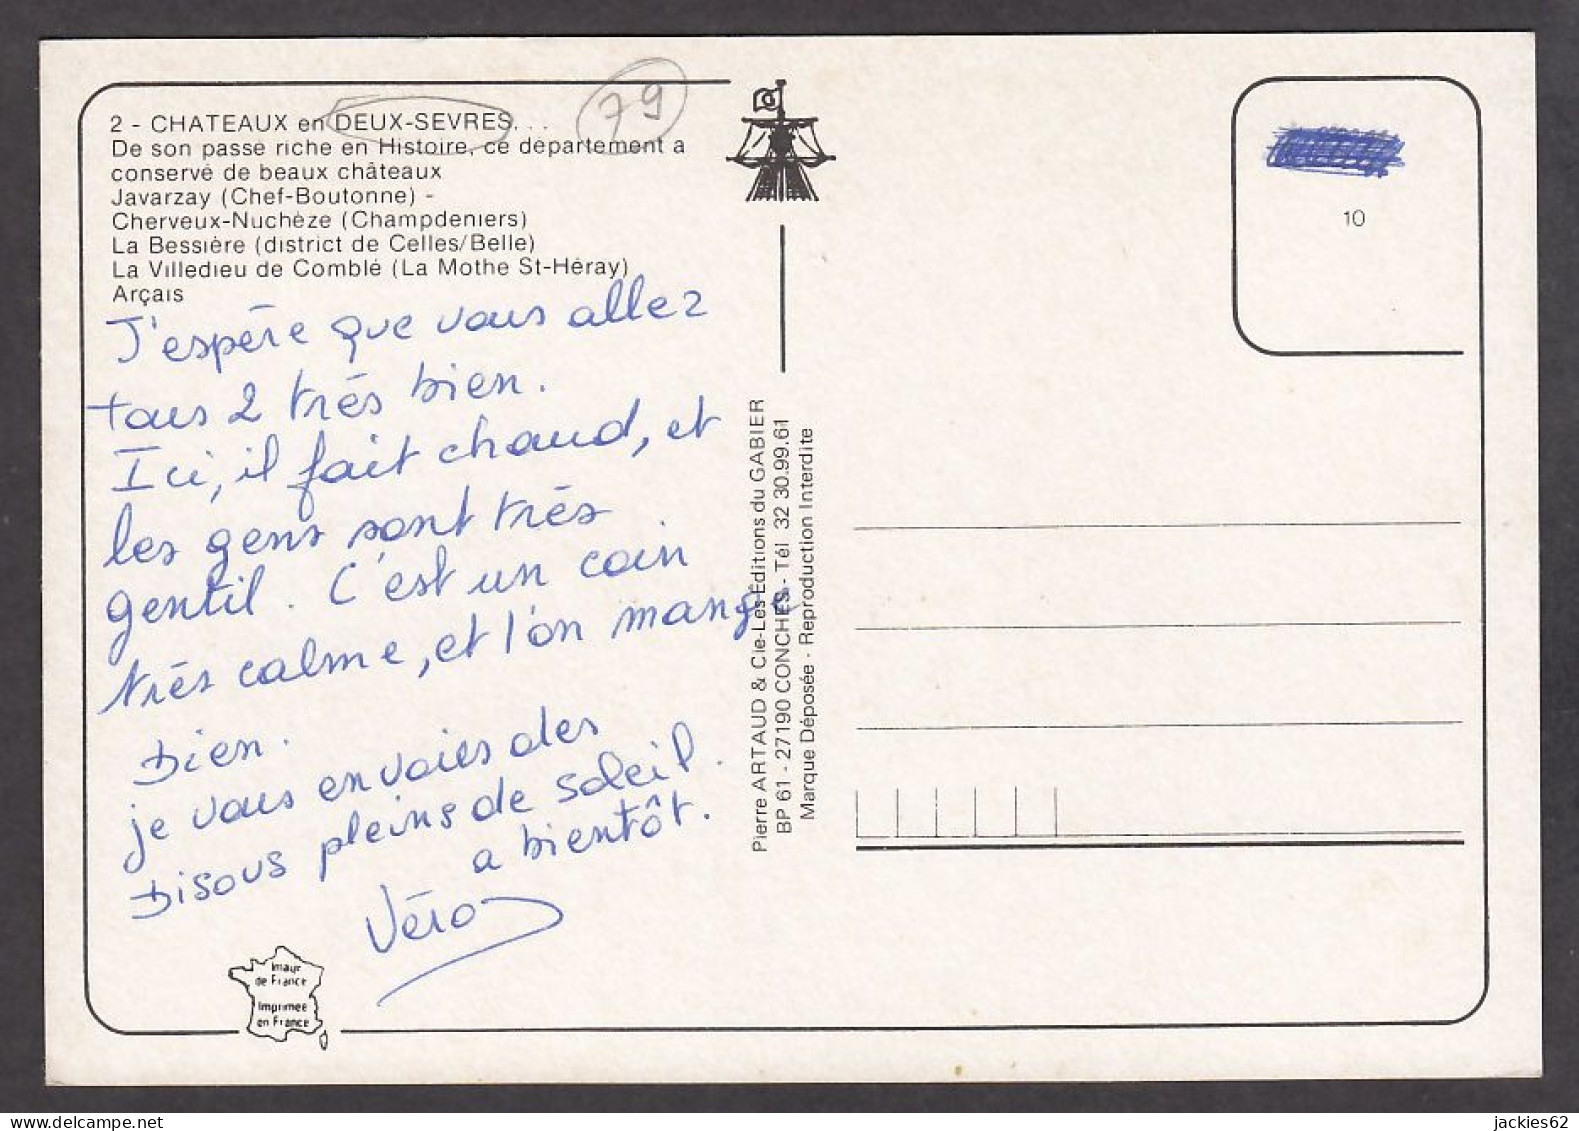 2 - CHATEAUX en DEUX-SEVRES...
De son passe riche en Histoire, ce département a
conservé de beaux châteaux
Javarzay (Chef-Boutonne) -
Cherveux-Nuchèze (Champdeniers)
La Bessière (district de Celles/Belle)
La Villedieu de Comblé (La Mothe St-Héray)
Arçais
79
J'espère que vous allez
tous 2 très bien.
Ici, il fait chaud, et
les gens sont très
gentil. C'est un coin
très calme, et l'on mange
bien.
je vous envoies des
bisous pleins de soleil.
a bientôt.
Véro
Imagé
de France
Imprimée
en France
Pierre ARTAUD & Cie-Les Editions du GABIER
BP 61 - 27190 CONCHES - Tél 32 30.99.61
Marque Déposée - Reproduction Interdite
10
delcampe.net
jackies62